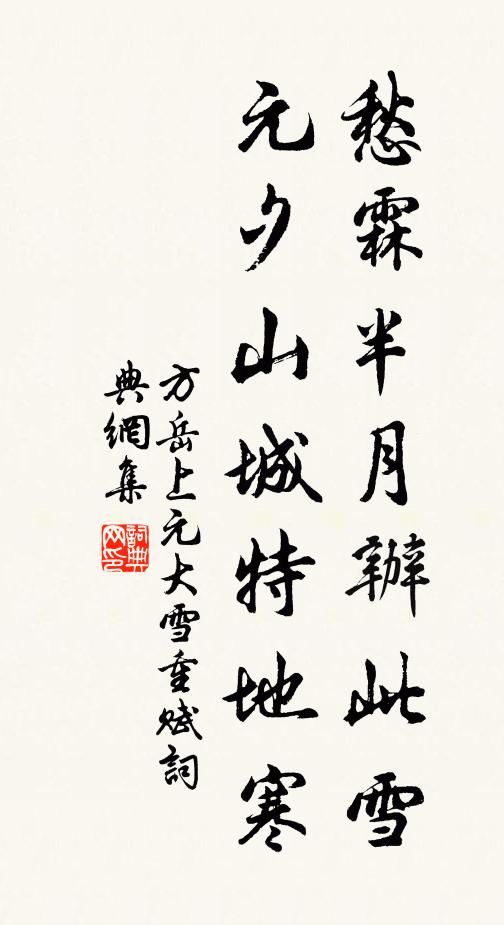 愁霖半月辦此雪
元夕山城特地寒
方岳上元大雪重賦詞
典網集
詞典
网印